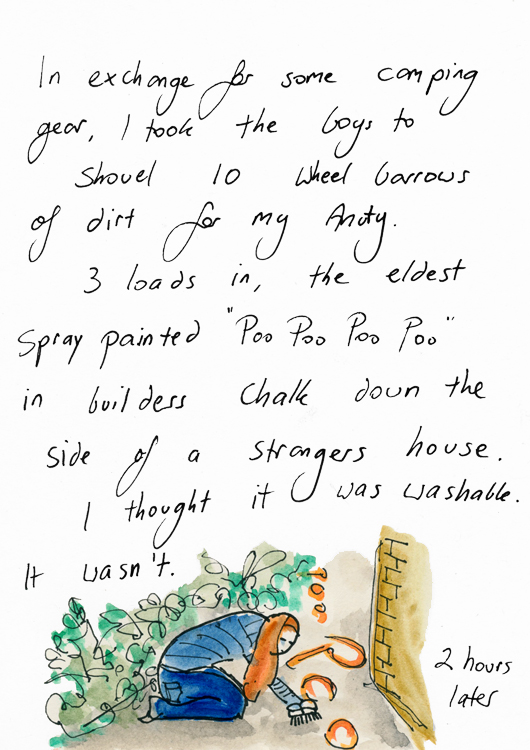 In exchange for some camping
gear, I took the boys to
shovel 10 wheel barrows
of dirt for my Aunty.
3 loads in, the eldest
spray painted "Poo Poo Poo Poo"
in builders chalk down the
side of a strangers house.
I thought it was washable.
It wasn't.
Poo
2 hours
later